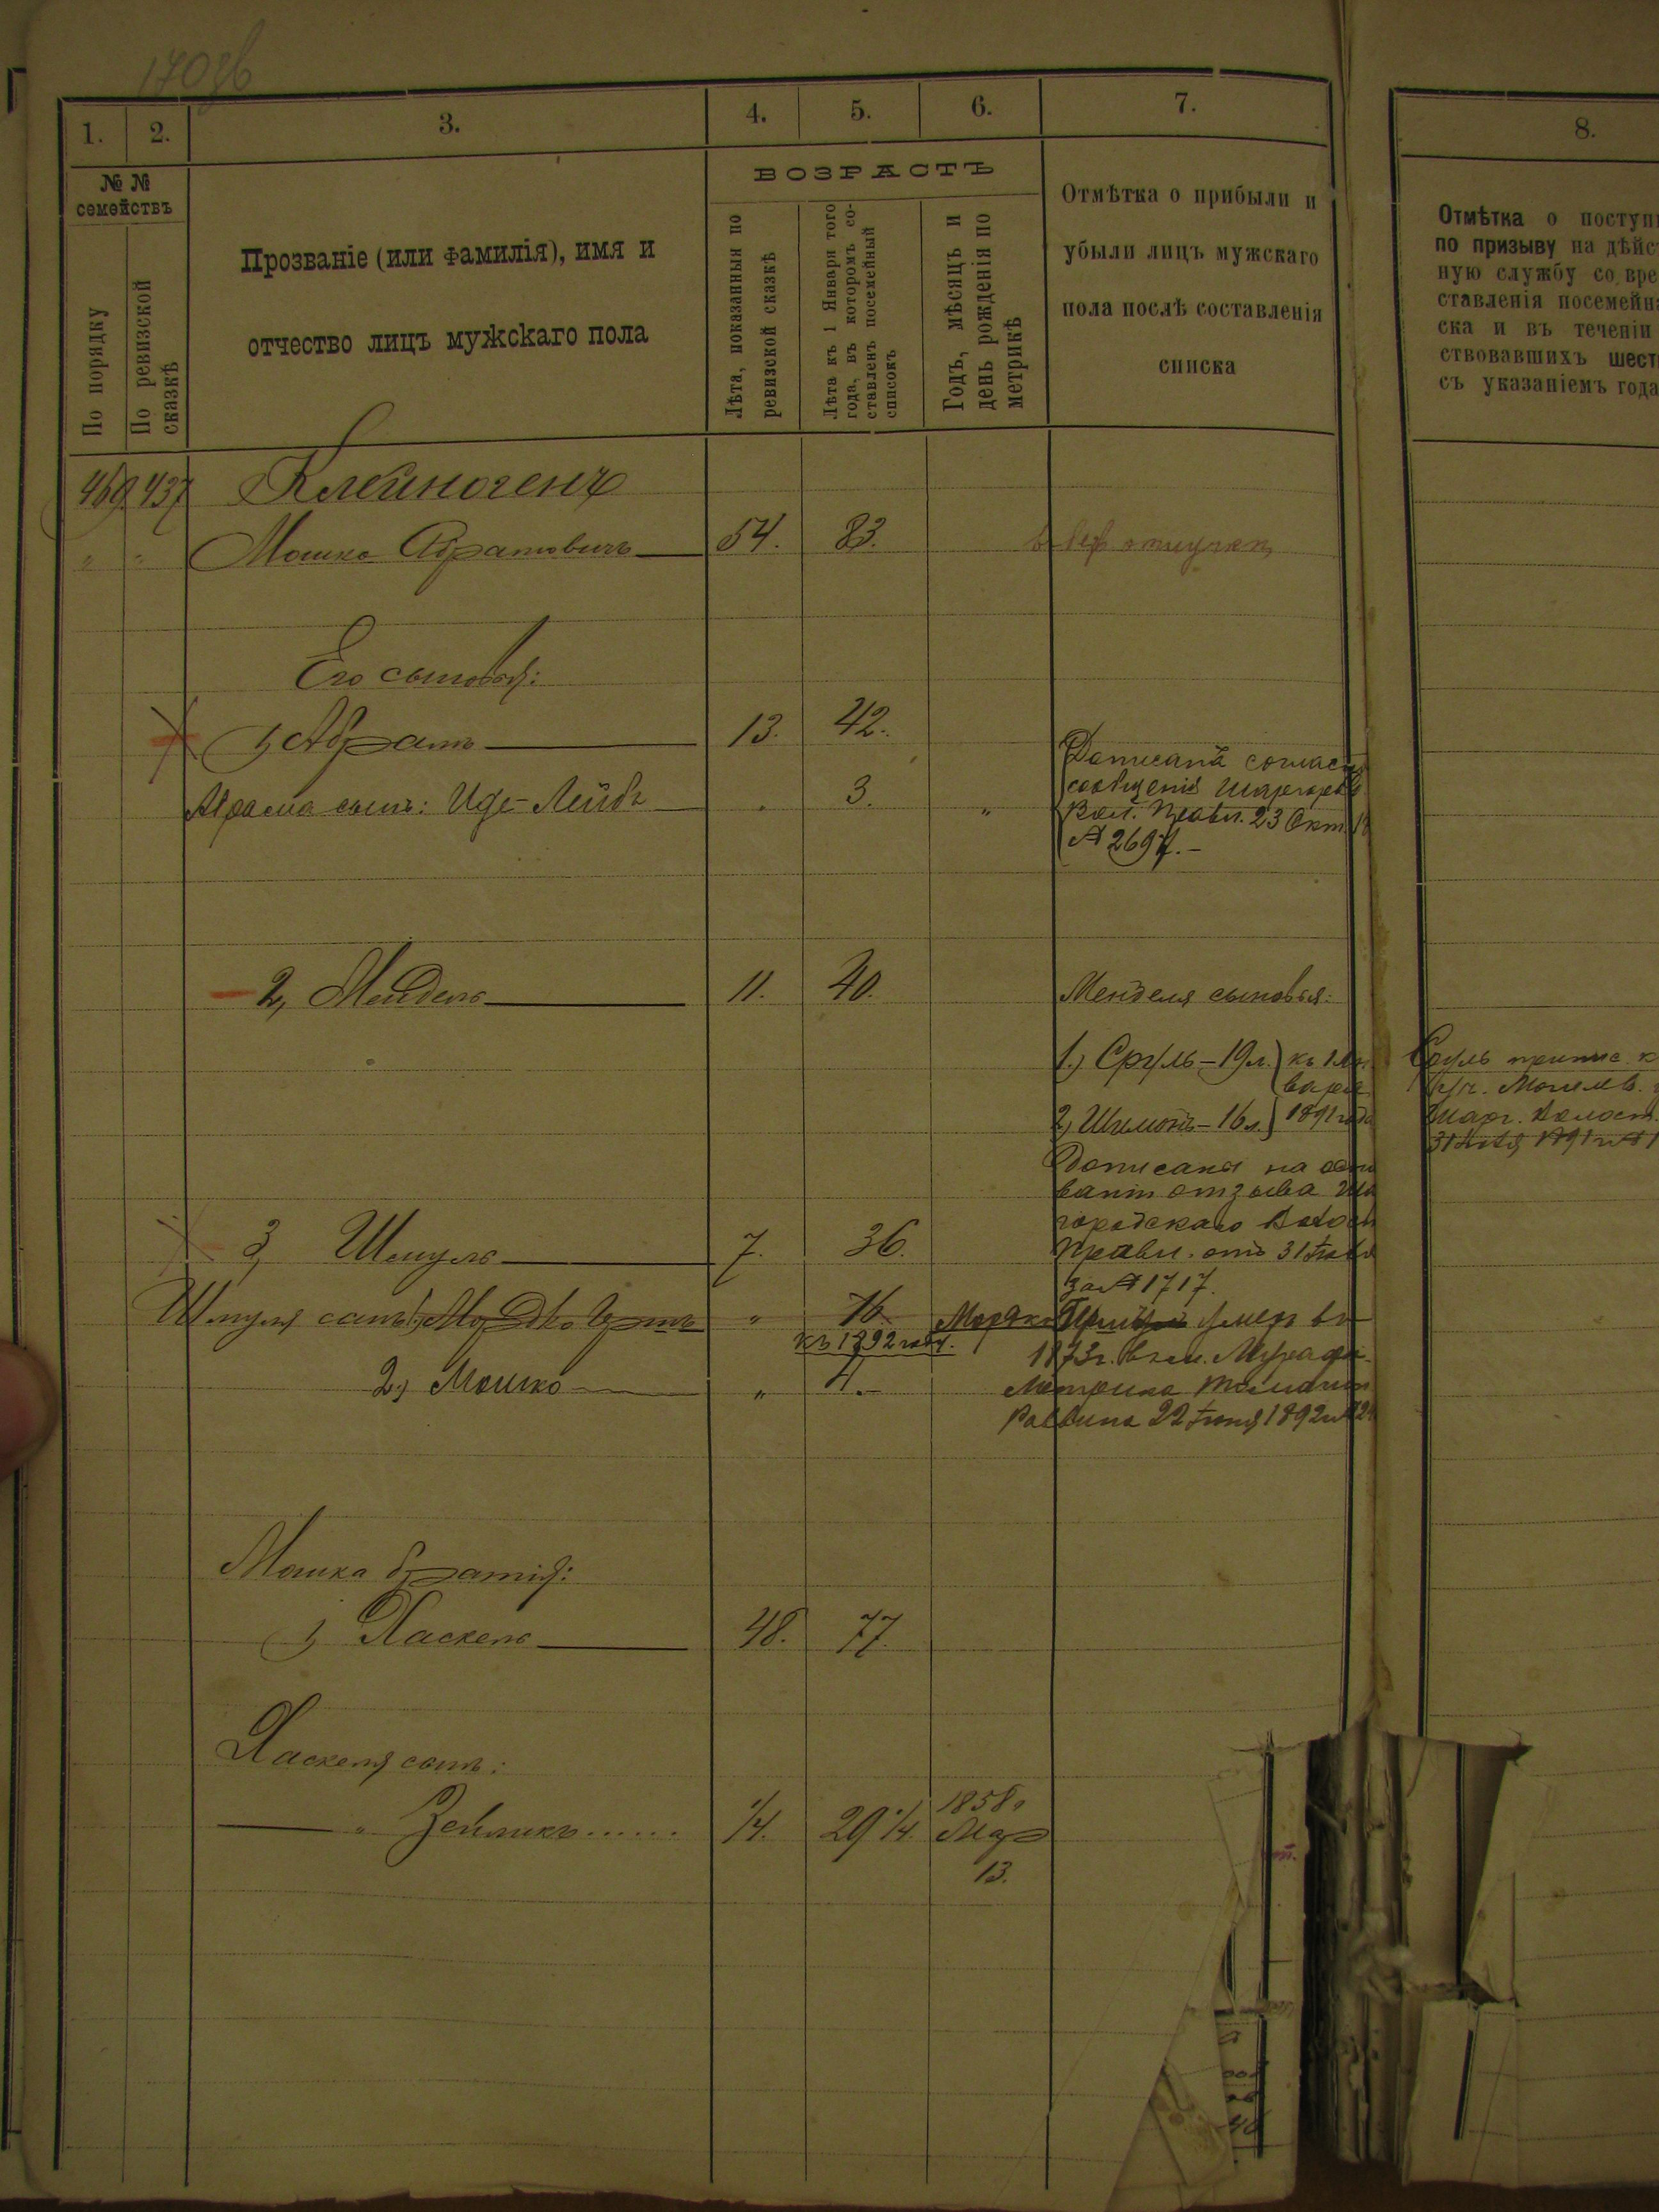 170 об
1. 2. 3. 4. 5. 6. 7. 8.
№ №
семействъ
По порядку
По ревизской
сказкѣ
Прозваніе (или фамилія), имя и
отчество лицъ мужскаго пола
ВОЗРАСТЪ
Лѣта, показанныя по
ревизской сказкѣ
Лѣта къ 1 Января того
года, въ которомъ со-
ставленъ посемейный
списокъ
Годъ, мѣсяцъ и
день рожденія по
метрикѣ
Отмѣтка о прибыли и
убыли лицъ мужскаго
пола послѣ составленія
списка
Отмѣтка о поступ
по призыву на дѣйс
ную службу со вре
ставленія посемейн
ска и въ теченіи
ствовавшихъ шест
съ указаніемъ года
469. 437
Мошко Абрамовичъ 54. 83.
Его сыновья:
1, Абрамъ 13. 42.
Абрама сынъ: Иде-Лейбъ " 3. "
Дописанъ соглас
сообщенія Шаргород
Вол. Правл. 23 Окт. 18
№ 2697.-
2, Мендель 11. 40.
Менделя сыновья:
1.) Сруль - 19 л. къ 1 Ян
варя
2) Шимонъ - 16 л. 1891 года
Дописаны на осно
ваніи отзыва Ша
городскаго Волос
Правл. отъ 31 Іюля
за № 1717.
Сруль припис. к
уч. Могилев.
Шарг. Волост.
31 Іюля 1891 г. №1
3, Шмуль 7. 36.
Шмуля сынъ: 1, Мордко " 16
Мордко умеръ въ
къ 1892 году.
1873 г. въ м. Мурафа.
2, Мошко " 4.-
Метрика
Раввина 22 Іюня 1892 г. №
Мошка братья:
1, Хаскель 48. 77.
Хаскеля сынъ:
" Зейликъ...... 1/4. 29 1/4. 1858 г
Мар
13.